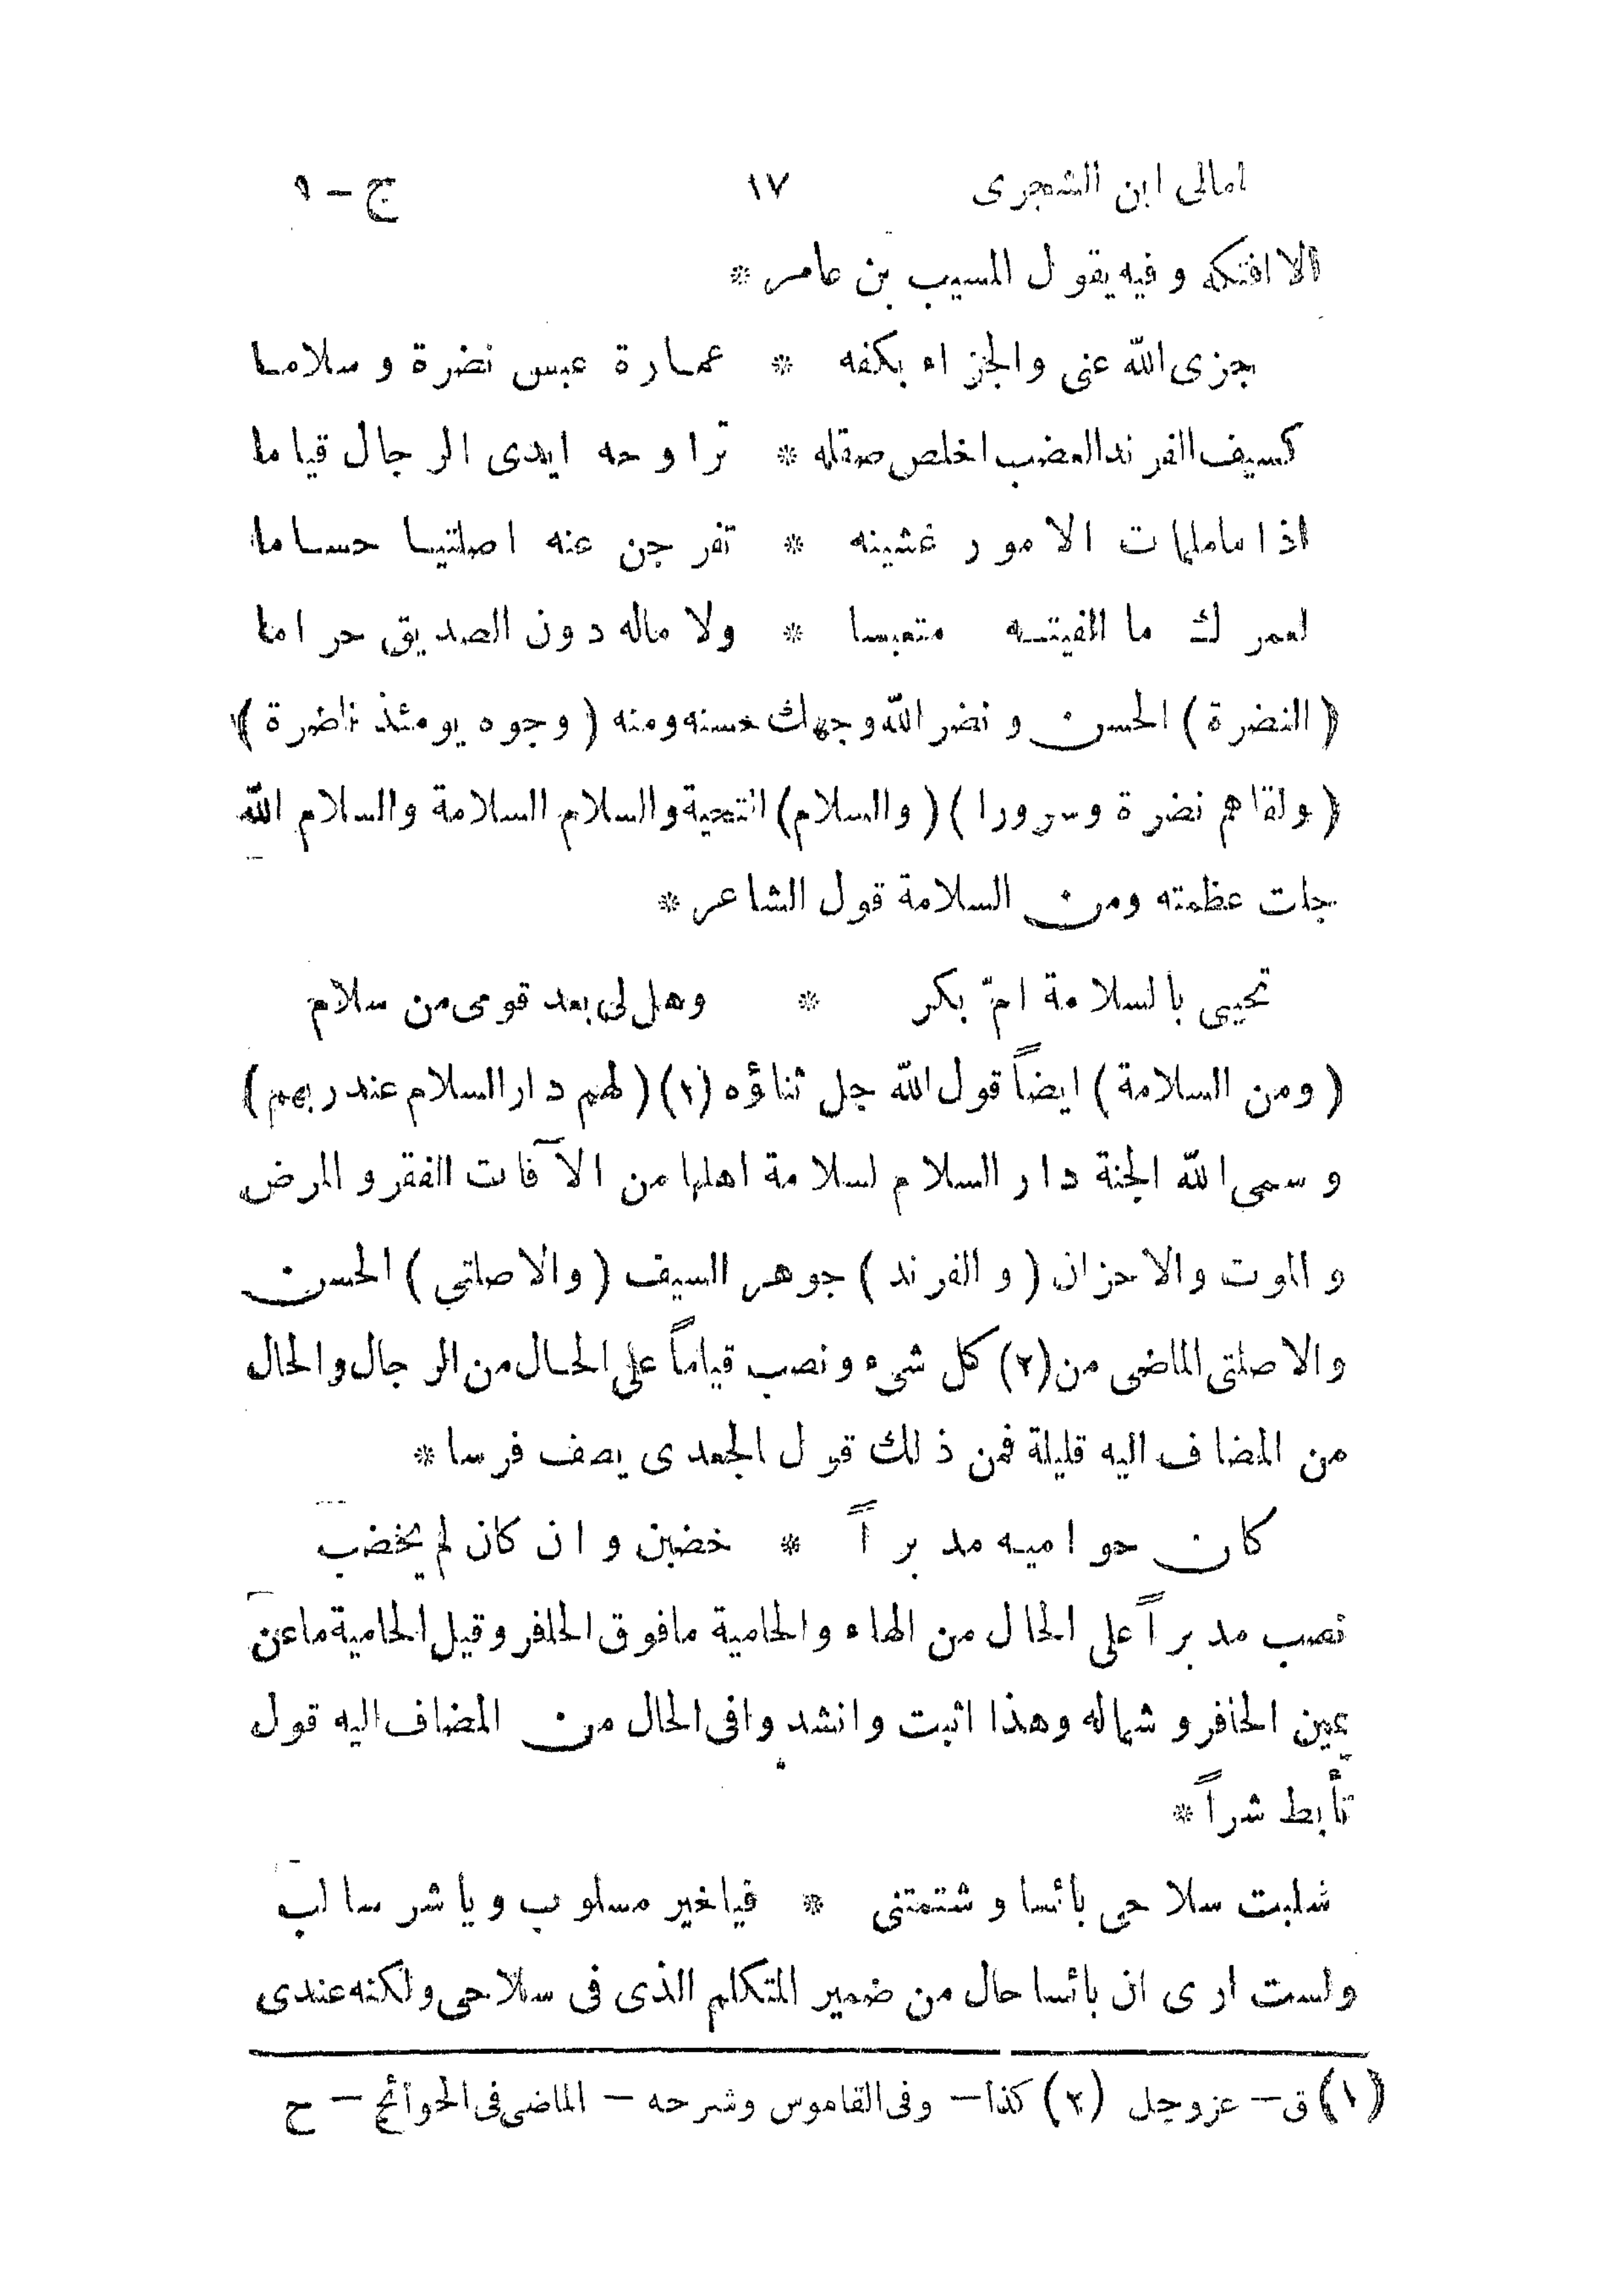 امالى ابن الشجرى ١٧ ج – ١
الا افتكه وفيه يقول المسيب بن عامر *
جزى الله عنى والجزاء بكفه * عمارة عبس نضرة وسلاما
كسيف الفرند العضب اخلص صقله * تراوحه ايدى الرجال قياما
اذا ما ملمات الامور غشينه * تفرجن عنه اصلتيا حساما
لعمرك ما الفيته متعبسا * ولا ماله دون الصديق حراما
(النضرة) الحسن ونضر الله وجهك حسنه ومنه (وجوه يومئذ ناضرة)
(ولقاهم نضرة وسرورا) (والسلام) التحية والسلام السلامة والسلام الله
جلت عظمته ومن السلامة قول الشاعر *
تحيى بالسلامة امّ بكر * وهل لى بعد قومى من سلام
(ومن السلامة) ايضاً قول الله جل ثناؤه (١) (لهم دار السلام عند ربهم)
وسمى الله الجنة دار السلام لسلامة اهلها من الآفات الفقر والمرض
والموت والاحزان (والفرند) جوهر السيف (والاصلتى) الحسن
والاصلتى الماضى من (٢) كل شىء ونصب قياماً على الحال من الرجال والحال
من المضاف اليه قليلة فمن ذلك قول الجعدى يصف فرسا *
كان حواميه مدبراً * خضبن وان كان لم يخضب
نصب مدبراً على الحال من الهاء والحامية مافوق الحافر وقيل الحامية ماعن
يمين الحافر وشماله وهذا اثبت وانشدوا فى الحال من المضاف اليه قول
تأبط شراً *
سلبت سلاحى بائسا وشتمتنى * فياخير مسلوب وياشر سالب
ولست ارى ان بائسا حال من ضمير المتكلم الذى فى سلاحى ولكنه عندى
(١) ق – عز وجل (٢) كذا – وفى القاموس وشرحه – الماضى فى الحوائج – ح